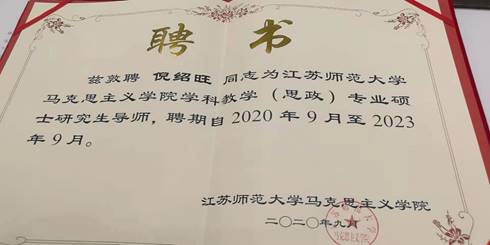 聘书
兹敦聘 倪绍旺 同志为江苏师范大学
马克思主义学院学科教学（思政）专业硕
士研究生导师，聘期自2020年9月至2023
年9月。
江苏师范大学马克思主义学院
二〇二〇年九月